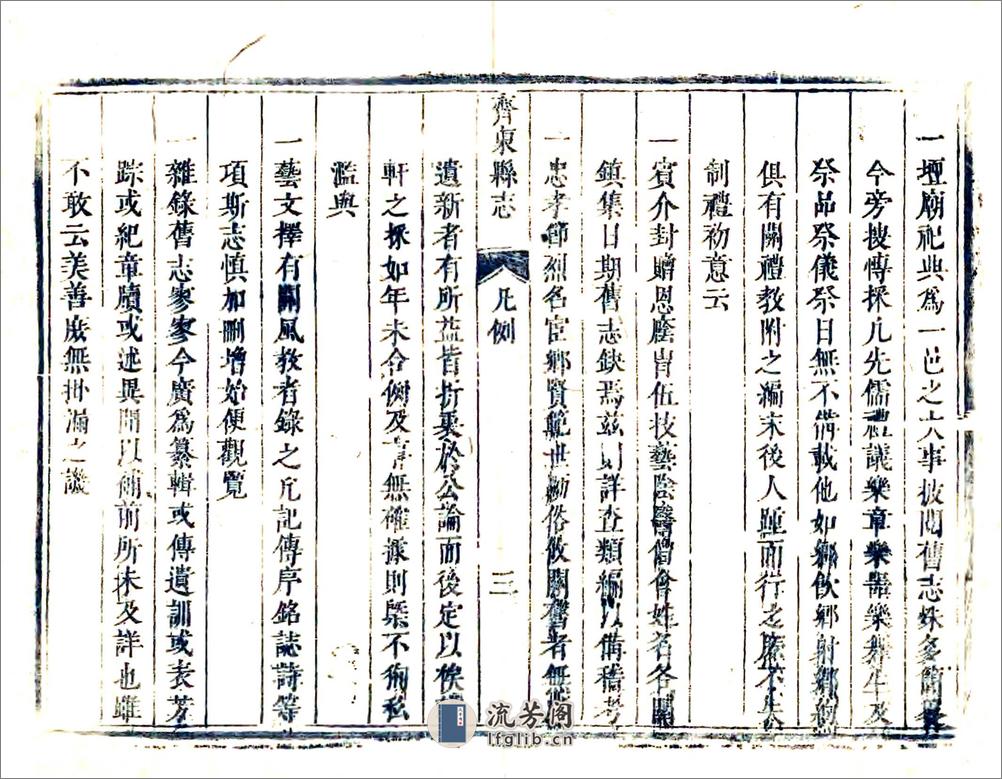 一壇廟祀典爲一邑之大事披閱舊志殊多簡畧
今旁搜博採凡先儒禮議樂章樂器樂舞生及
祭品祭儀祭日無不備載他如鄉飲鄉射鄉約
俱有關禮教附之編末後人踵而行之庶不失
制禮初意云
一賓介封贈恩廕胄伍技藝陰醫僧會姓名各關
鎮集日期舊志缺焉兹則詳查類編以備稽考
一忠孝節烈名宦鄉賢範世勵俗攸關舊者無
齊東縣志
凡例
三
遺新者有所益皆折衷於公論而後定以俟
軒之採如年未合例及事無確據則槩不徇私
濫與
一藝文擇有關風教者錄之凡記傳序銘誌詩等
項斯志慎加刪增始便觀覽
一雜錄舊志寥寥今廣爲纂輯或傳遺訓或表芳
踪或紀章牘或述異聞以補前所未及詳也雖
不敢云美善庶無掛漏之譏
流芳阁
lfglib.cn